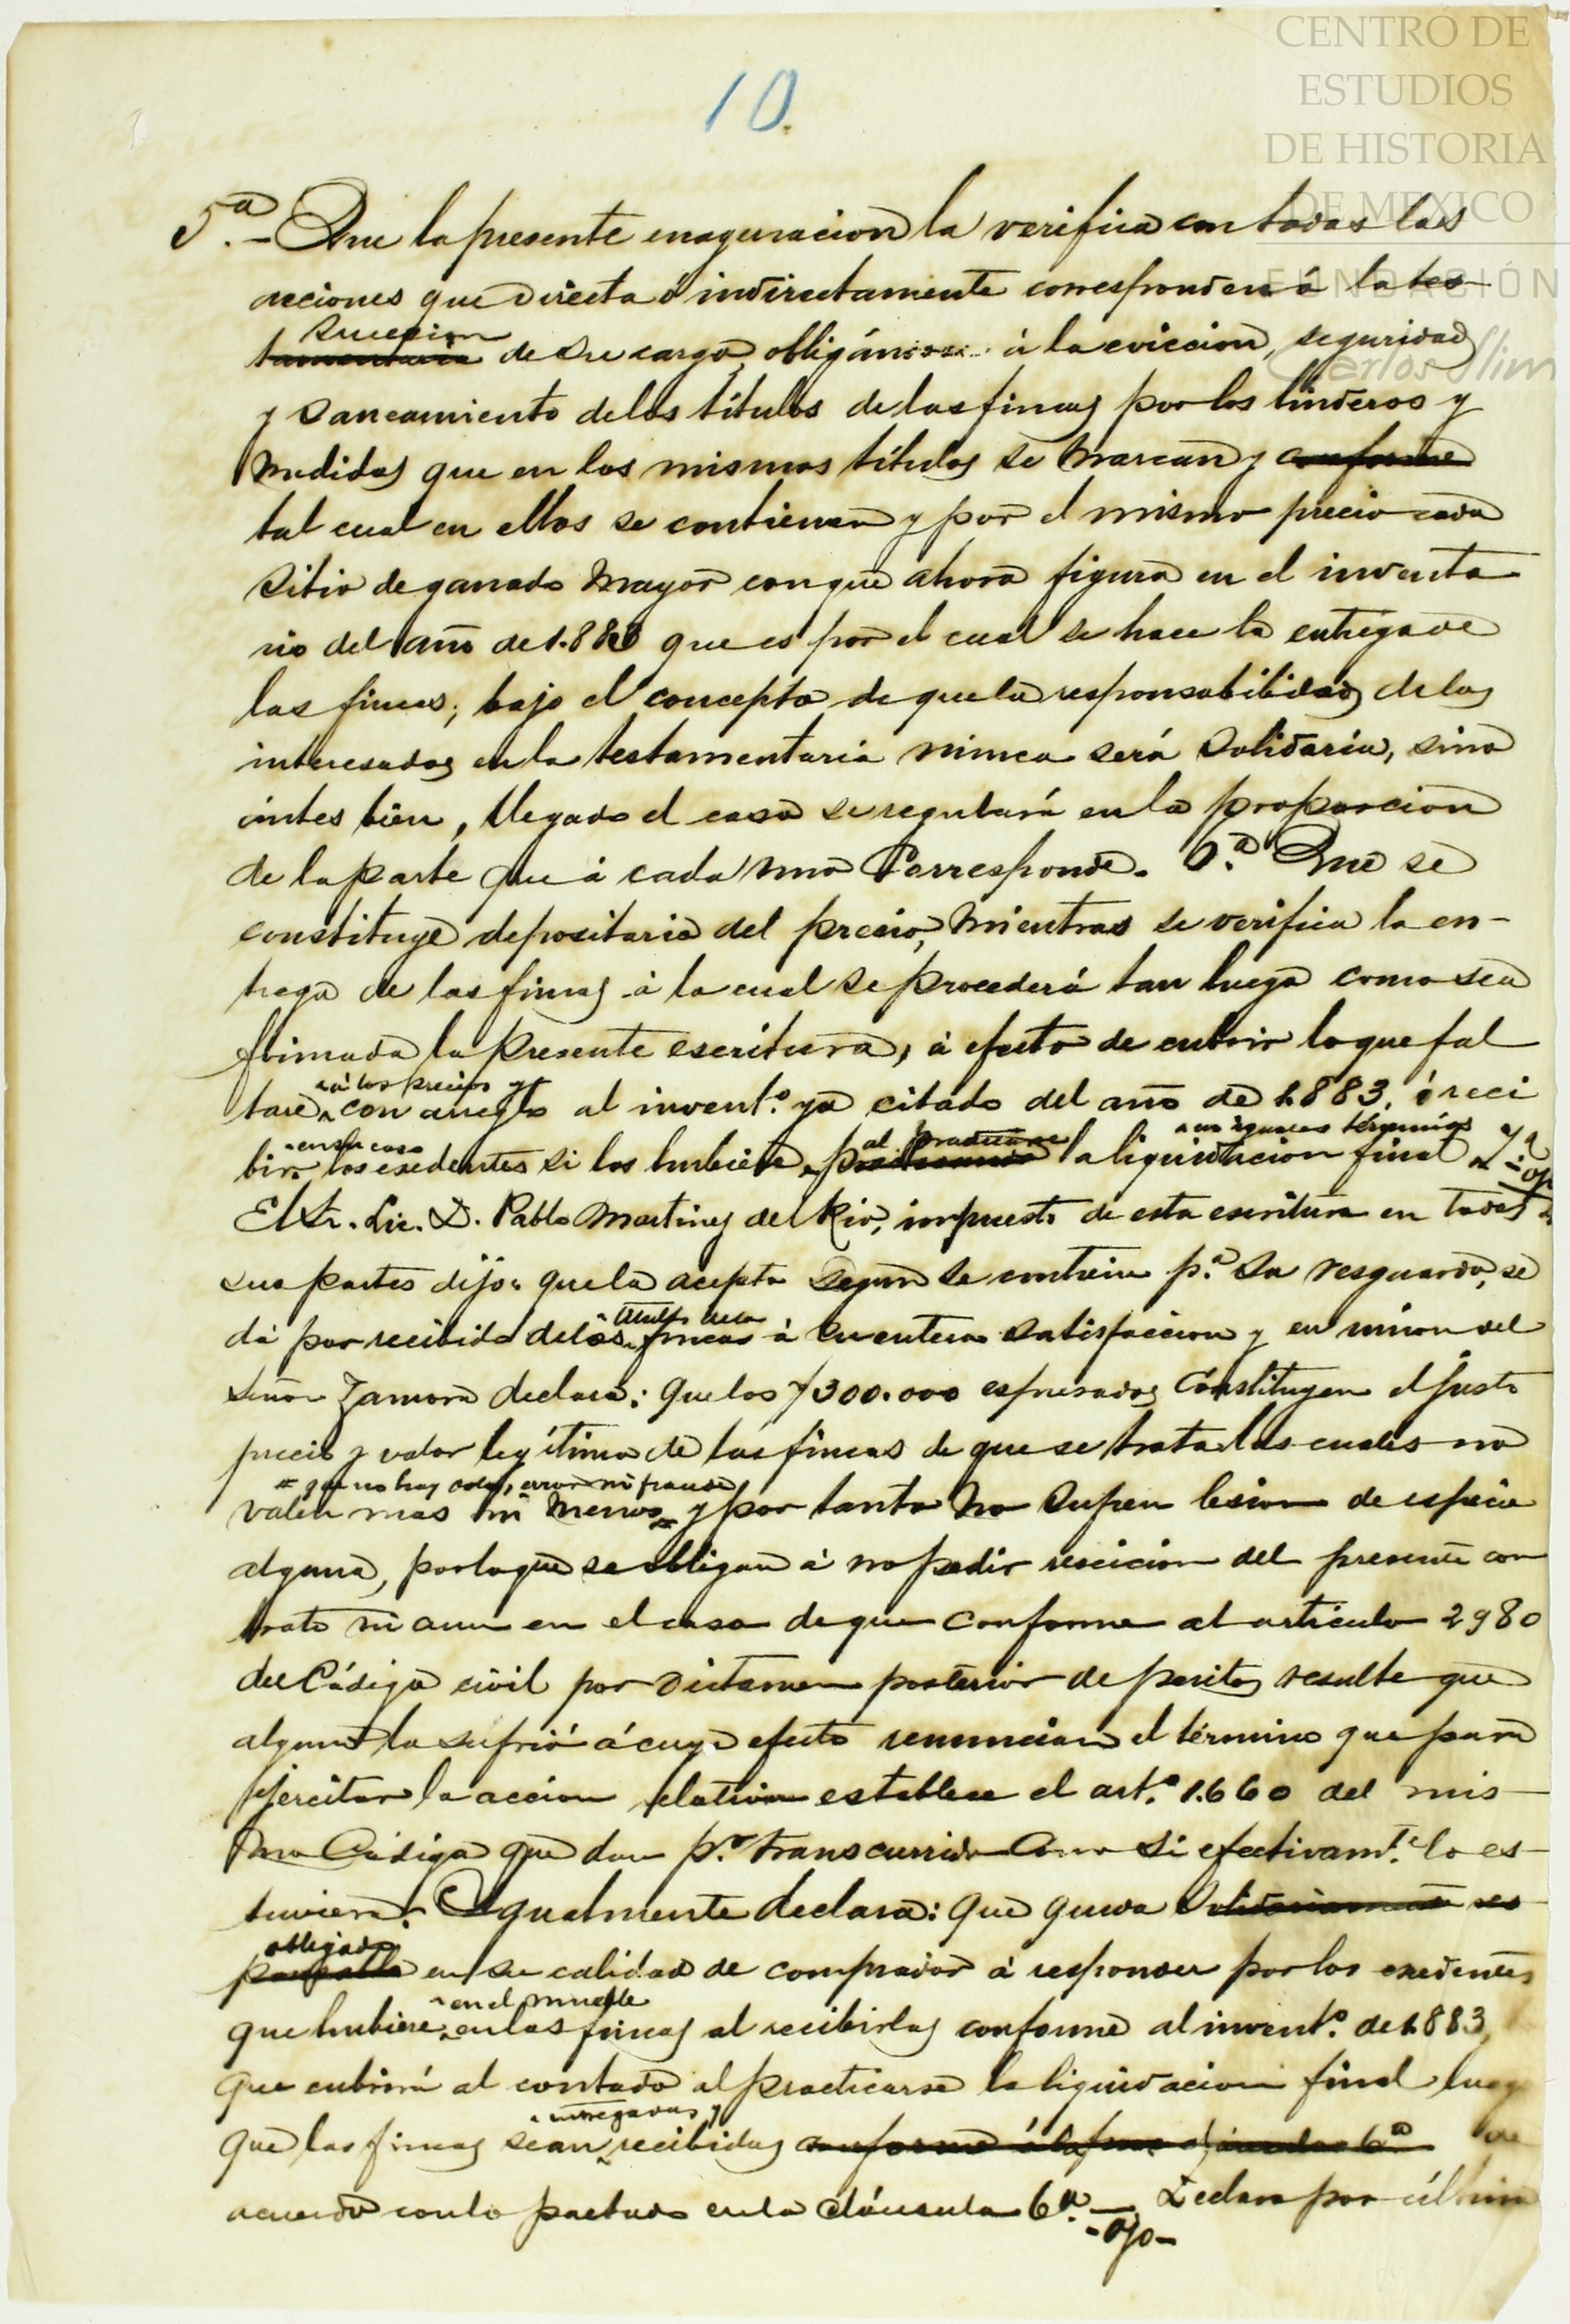 CENTRO DE
ESTUDIOS
DE HISTORIA
DE MEXICO
FUNDACIÓN
Carlos Slim
10.
5ª.- Que la presente enagenacion la verifica con todas las
acciones que directa ó indirectamente corresponden á la tes-
sucesion
tamentaria de su cargo, obligándose á la eviccion, seguridad
y saneamiento de los títulos de las fincas por los linderos y
medidas que en los mismos títulos se marcan y conforme
tal cual en ellos se contienen y por el mismo precio cada
sitio de ganado mayor con que ahora figura en el inventa
rio del año de 1.883 que es por el cual se hace la entrega de
las fincas; bajo el concepto de que la responsabilidad de los
interesados en la testamentaria nunca será solidaria, sino
ántes bien, llegado el caso se regulará en la proporcion
de la parte que á cada uno corresponde. 6.ª Que se
constituye depositario del precio, mientras se verifica la en-
trega de las fincas á la cual se procederá tan luego como sea
firmada la presente escritura, á efecto de cubrir lo que fal
á los precios y
tare con arreglo al invent.º ya citado del año de 1.883, ó reci
en su caso al practicarse en iguales términos
bir los exedentes si los hubiere la liquidacion final 7ª
El Sr. Lic. D. Pablo Martinez del Rio, impuesto de esta escritura en todas
sus partes dijo: que la acepta segun se contiene p.ª su resguardo, se
dá por recibido de las fincas á su entera satisfaccion y en union del
Señor Zamora declara: que los $300.000 espresados constituyen el justo
precio y valor legítimo de las fincas de que se trata las cuales no
que no hay dolo, error ni fraude
valen mas ni menos y por tanto no sufren lesion de especie
alguna, por lo que se obligan á no pedir rescicion del presente con
trato ni aun en el caso de que conforme al artículo 2980
del Código civil por dictamen posterior de peritos resulte que
alguno la sufrió á cuyo efecto renuncian el término que para
ejercitar la accion relativa establece el art.º 1.660 del mis-
mo Código que dan p.r transcurrido como si efectivam.te lo es-
tuviera. Igualmente declara: que queda solidariamente res
obligado
ponsable en su calidad de comprador á responder por los exedentes
en el mueble
que hubiere en las fincas al recibirlas conforme al invent.º de 1.883
que cubrirá al contado al practicarse la liquidacion final luego
entregadas y
que las fincas sean recibidas conforme á la cláusula 6ª de
acuerdo con lo pactado en la cláusula 6ª.- Declara por último
-ojo-